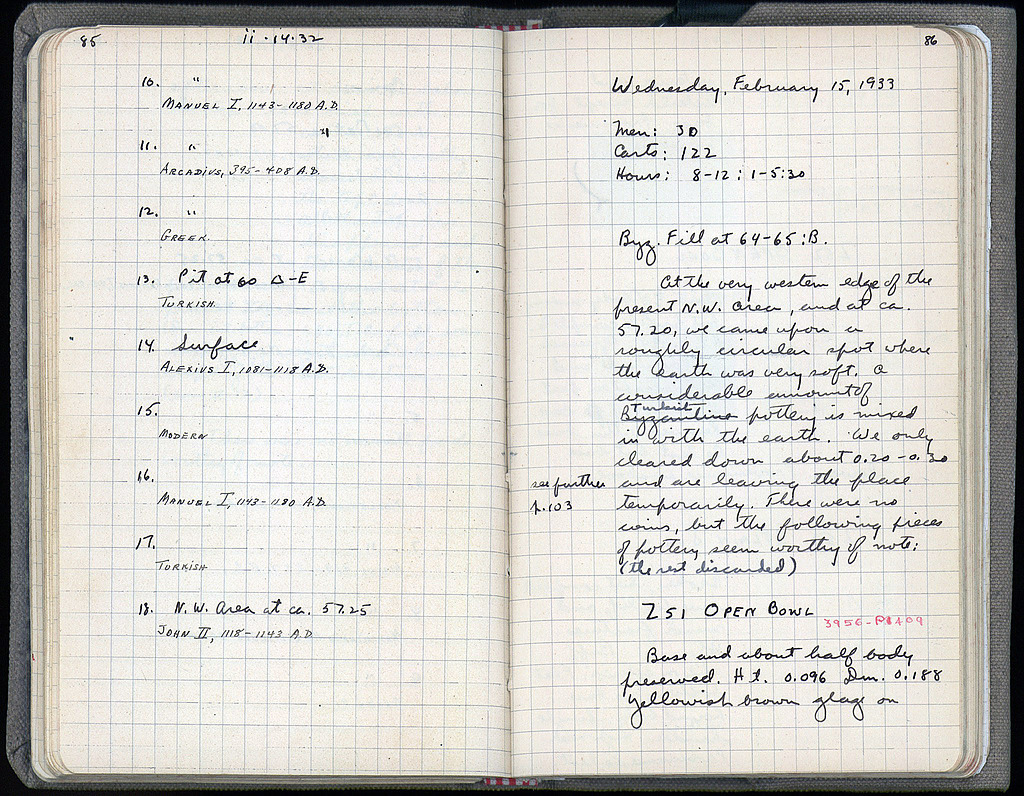 85
ii · 14 · 32
10. "
MANUEL I, 1143-1180 A.D.
11. "
ARCADIUS, 395-408 A.D.
12. "
GREEK.
13. Pit at 60 Δ-E
TURKISH.
14. Surface
ALEXIUS I, 1081-1118 A.D.
15.
MODERN
16.
MANUEL I, 1143-1180 A.D.
17.
TURKISH
18. N.W. Area at ca. 57.25
JOHN II, 1118-1143 A.D
86
Wednesday, February 15, 1933
Men: 30
Carts: 122
Hours: 8-12 : 1-5:30
Byz. Fill at 64-65 : B.
At the very western edge of the
present N.W. area, and at ca.
57.20, we came upon a
roughly circular spot where
the earth was very soft. A
considerable amount of
Turkish
Byzantine pottery is mixed
in with the earth. We only
cleared down about 0.20-0.30
see further
and are leaving the place
p.103
temporarily. There were no
coins, but the following pieces
of pottery seem worthy of note:
(the rest discarded)
251 OPEN BOWL
3956-P1409
Base and about half body
preserved. Ht. 0.096 Dm. 0.188
Yellowish brown glaze on